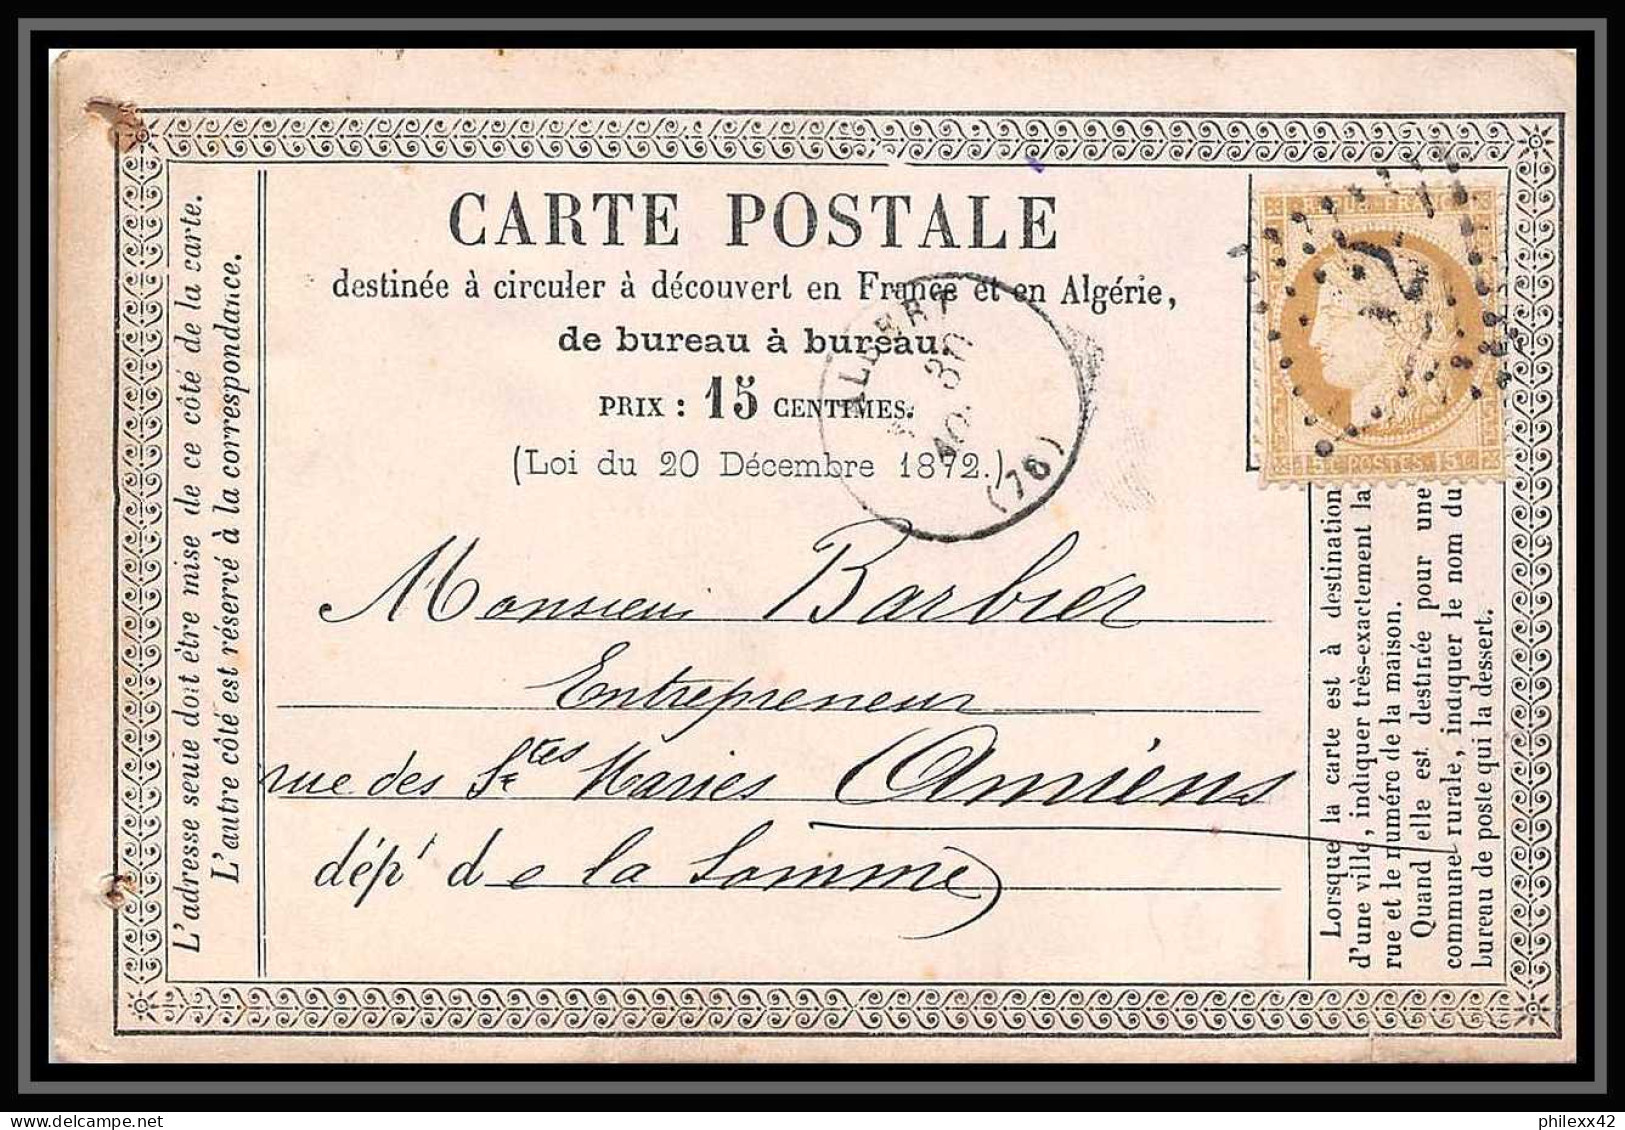 CARTE POSTALE
destinée à circuler à découvert en France et en Algérie,
de bureau à bureau.
PRIX : 15 CENTIMES.
(Loi du 20 Décembre 1872.)
L'adresse seule doit être mise de ce côté de la carte.
L'autre côté est réservé à la correspondance.
ALBERT
30
AO
(76)
15 C. POSTES 15 C.
Monsieur Barbier
Entrepreneur
rue des Stes Maries Amiens
dépt de la Somme
Lorsque la carte est à destination
d'une ville, indiquer très-exactement la
rue et le numéro de la maison.
Quand elle est destinée pour une
commune rurale, indiquer le nom du
bureau de poste qui la dessert.
philexx42